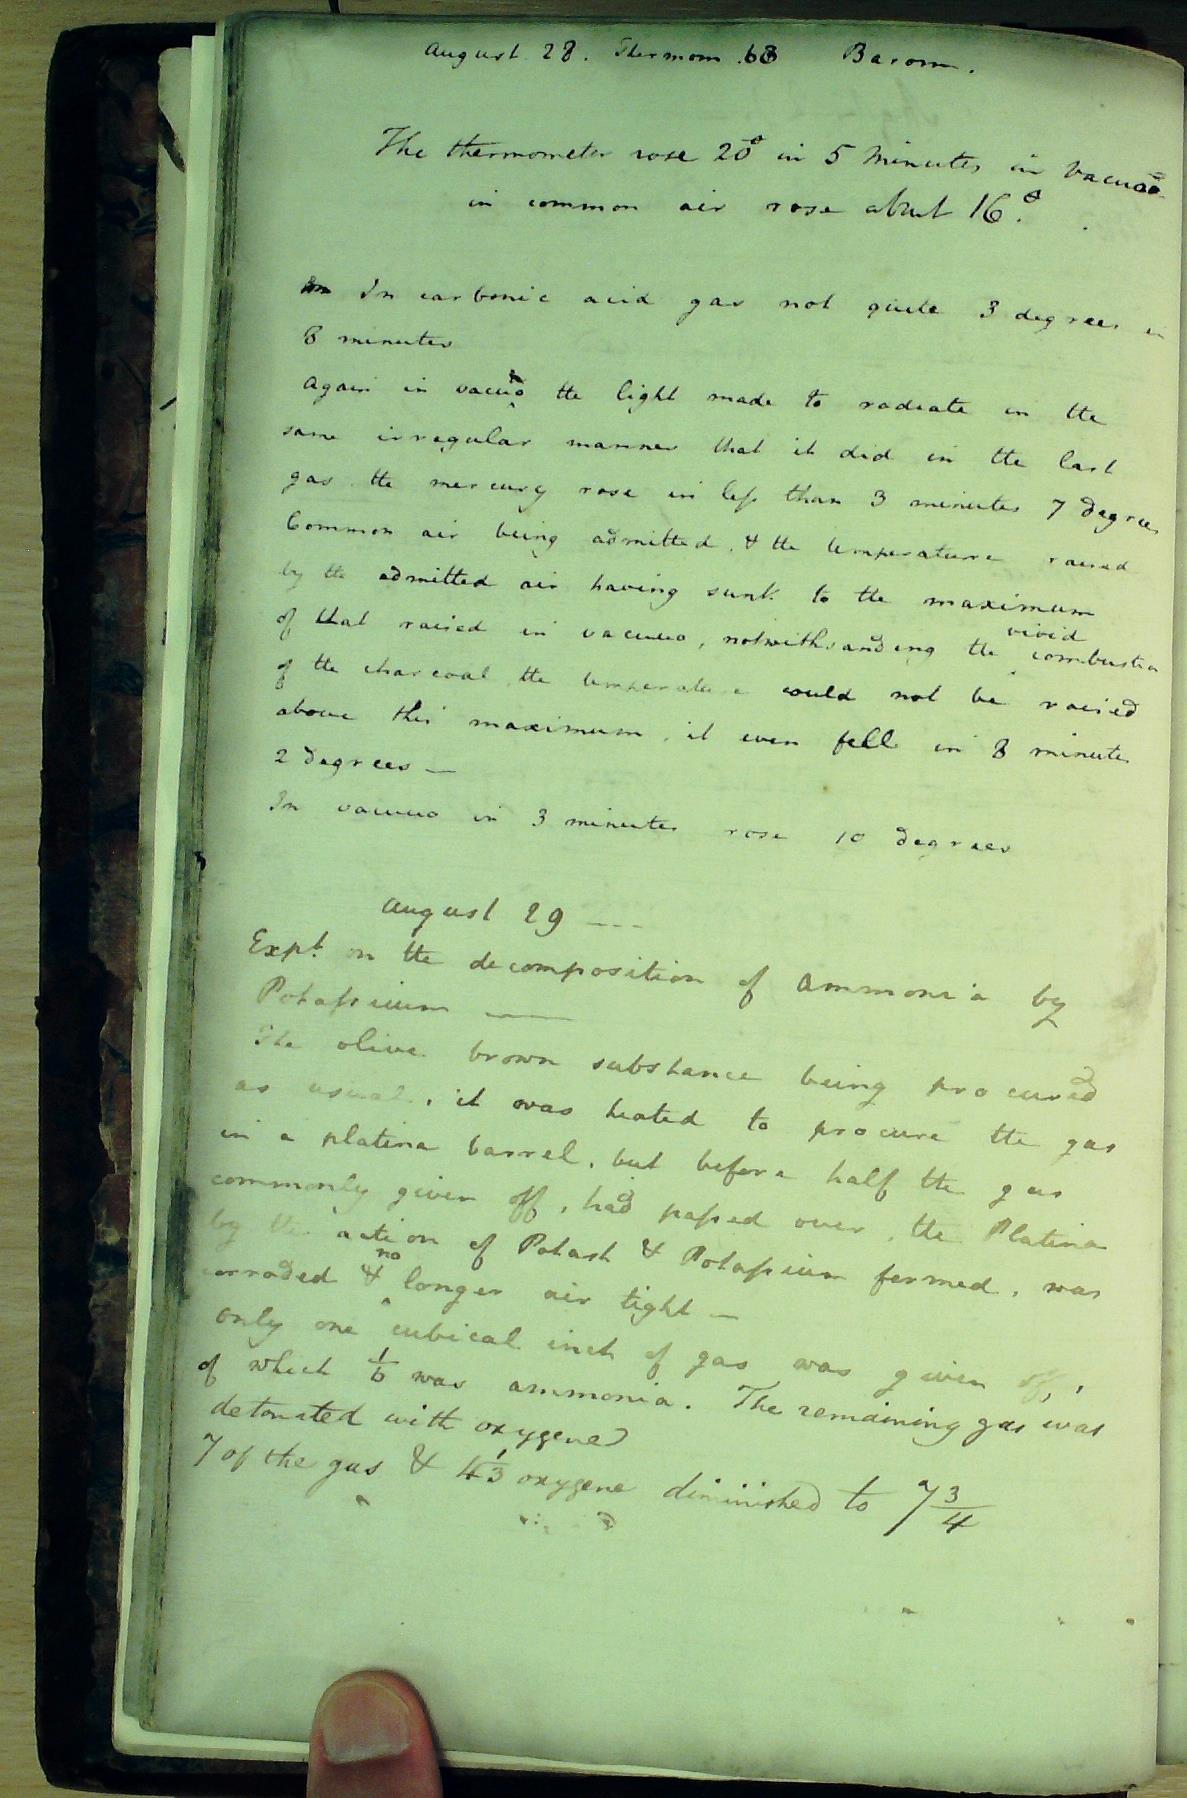 August 28. Thermom 68 Barom.
The thermometer rose 20° in 5 Minutes in Vacuo.
in common air rose about 16°.
In carbonic acid gas not quite 3 degrees in
8 minutes
Again in vacuo the light made to radiate in the
same irregular manner that it did in the last
gas the mercury rose in less than 3 minutes 7 degrees
Common air being admitted, & the temperature raised
by the admitted air having sunk to the maximum
of that raised in vacuuo, notwithsanding the vivid combustion
of the charcoal the temperature could not be raised
above this maximum, it even fell in 8 minutes
2 degrees —
In vacuuo in 3 minutes rose 10 degrees
August 29 ----
Expt. on the decomposition of Ammonia by
Potassium —
The olive brown substance being procured
as usual, it was heated to procure the gas
in a platina barrel, but before half the gas
commonly given off, had passed over, the Platina
by the action of Potash & Potassium formed, was
corroded & no longer air tight —
Only one cubical inch of gas was given off,
of which 1/6 was ammonia. The remaining gas was
detonated with oxygene
7 of the gas & 4 1/3 oxygene diminished to 7 3/4